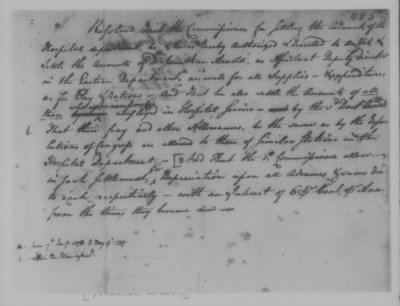 485
Resolved that the Commissioner for settling the Accounts of the
Hospital department be & he is hereby Authorized & directed to audit &
Settle the Accounts of Jonathan Arnold, as Assistant Deputy Director
in the Eastern Department, as well for all Supplies & Expenditures,
as for Pay & Rations — And that he also settle the Accounts of all
employed in Hospital Service — by the sd
b. That their pay and other Allowances, be the same as by the Reso
lutions of Congress are allowed to those of Similar Stations in the
Hospital Department, — And That the sd. Commissioner allow
in such Settlements, Depreciation upon all Advances & sums due
to each respectively — with an Interest of 6 Pr. Cent. Pr. Ann.
from the times they became due —
a. from
b.